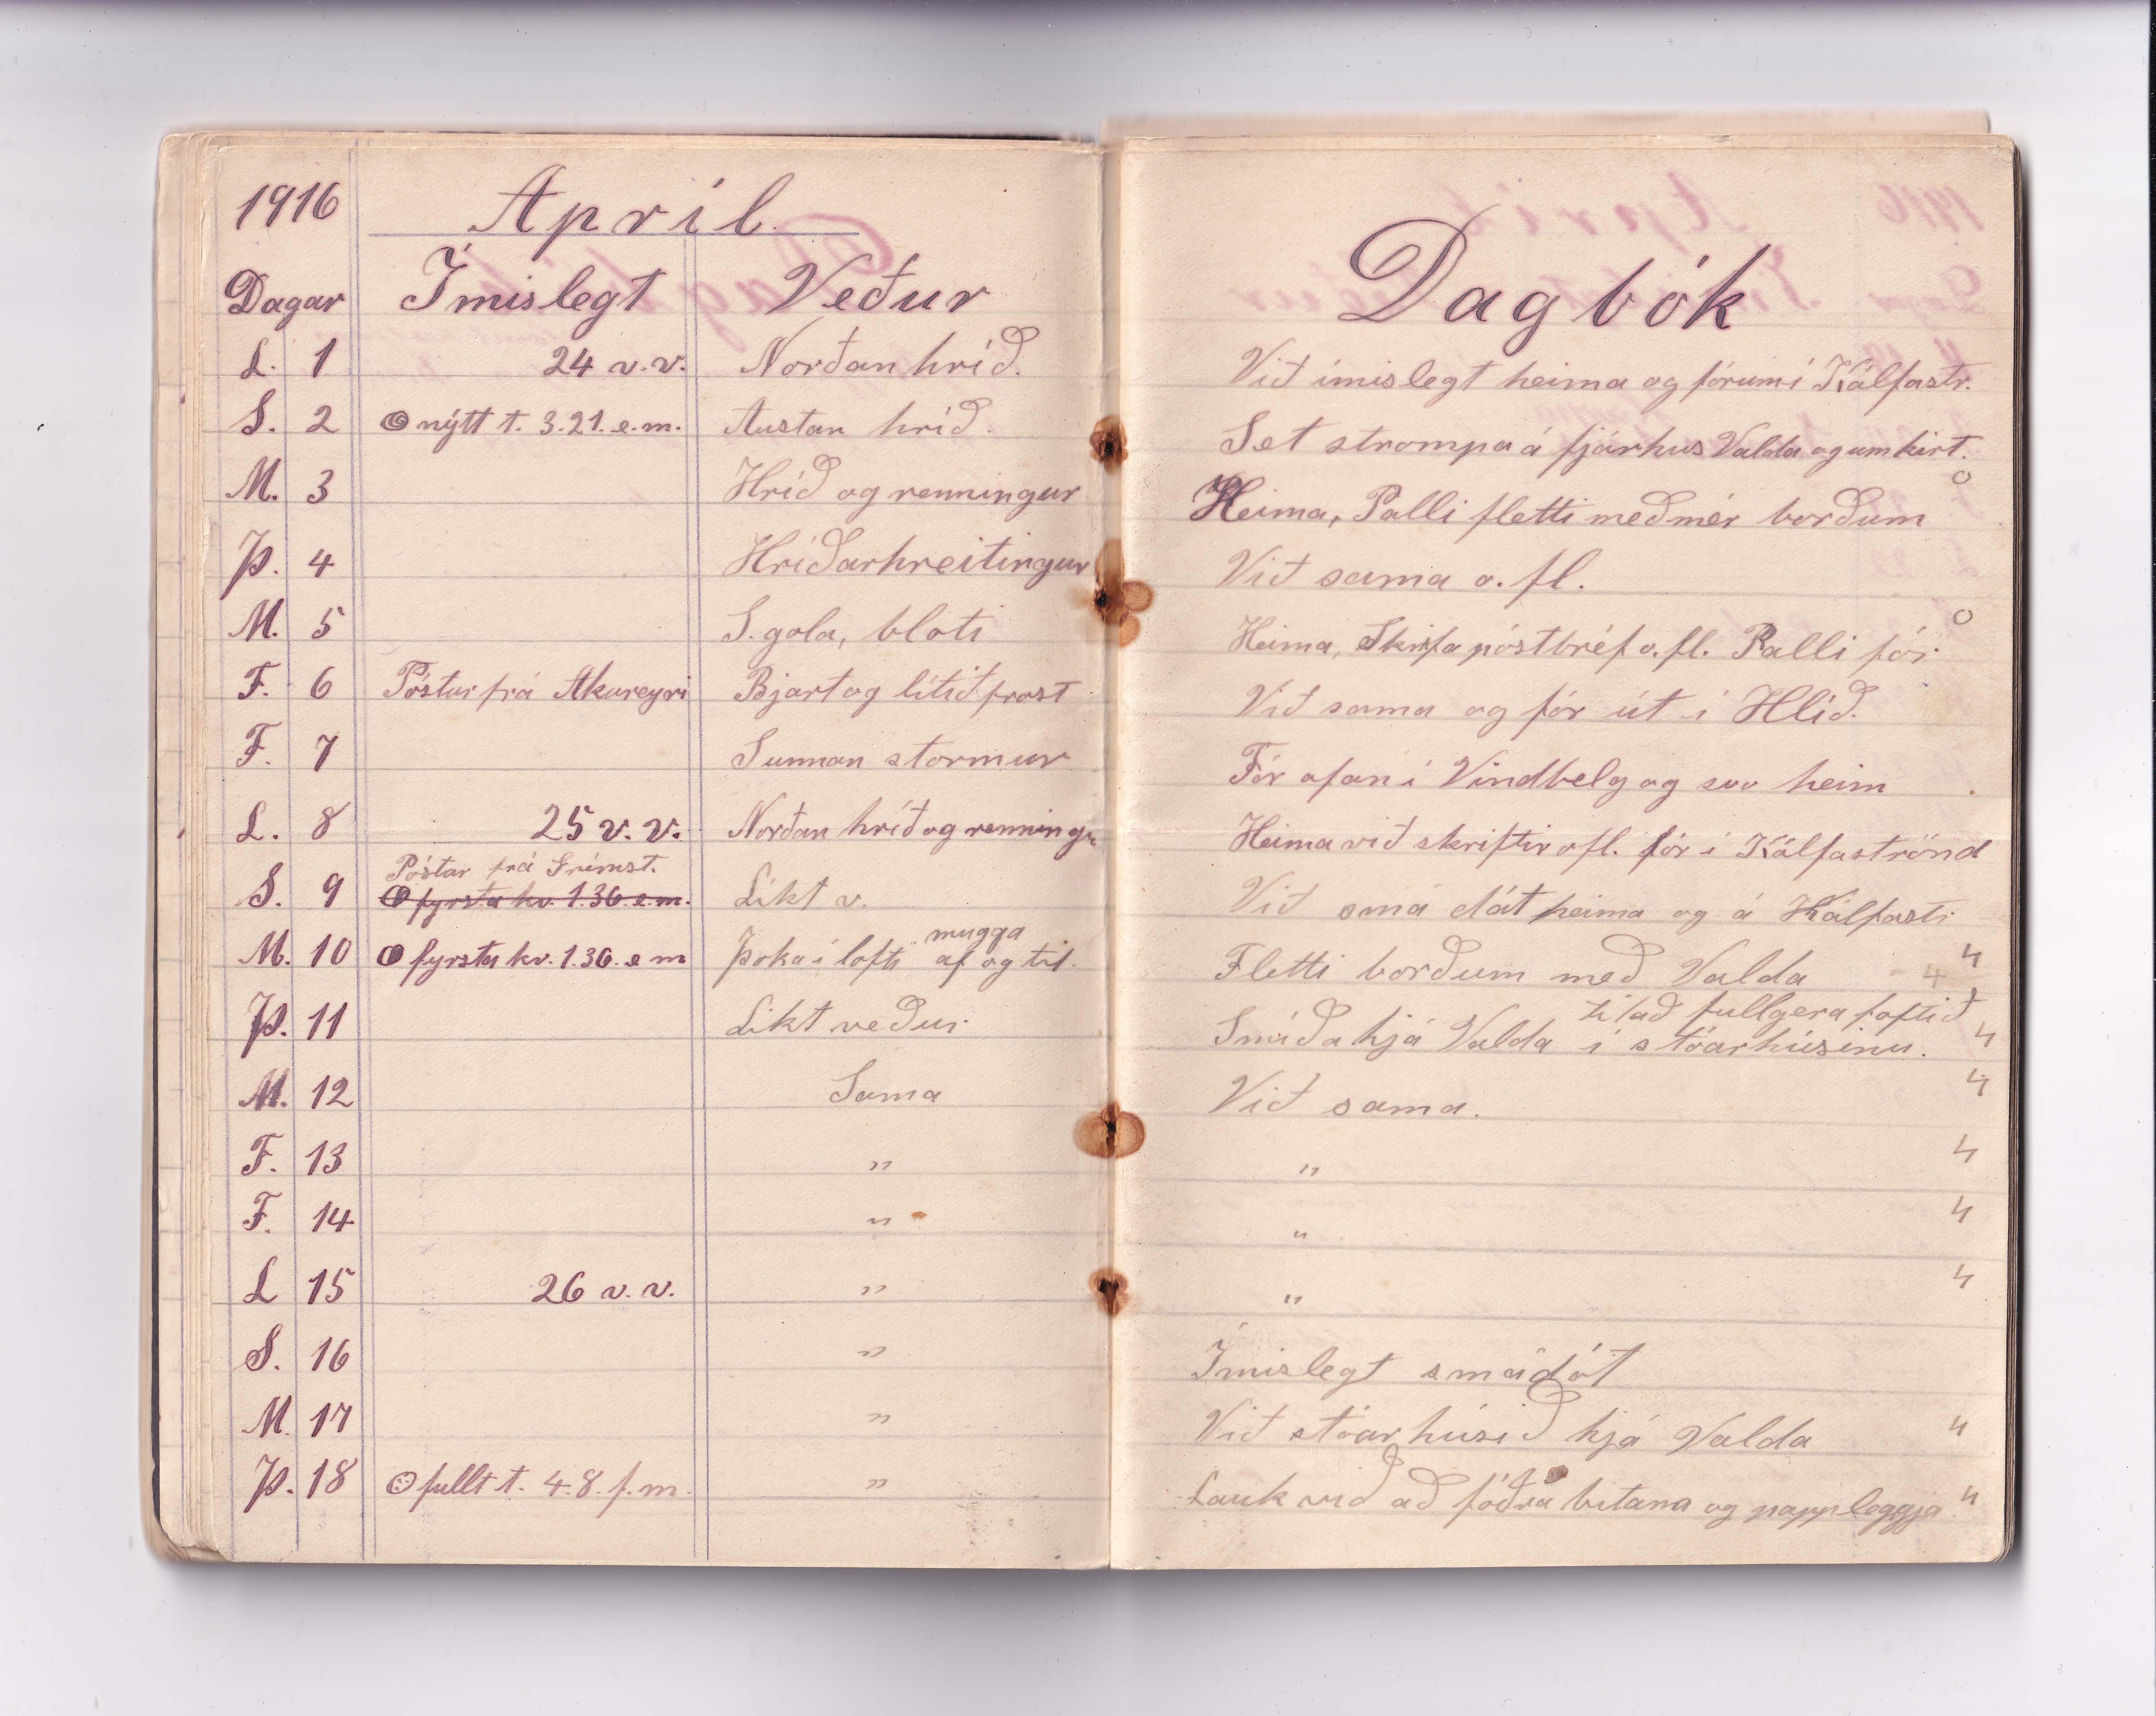 1916 Apríl.
Dagar Ímislegt Veður
L. 1 24 v.v. Norðan hríð.
S. 2 nýtt t. 3.21. e.m. Austan hríð.
M. 3 Hríð og renningur
Þ. 4 Hríðarhreitingur
M. 5 S. gola, bloti
F. 6 Póstur frá Akureyri Bjart og lítið frost
F. 7 Sunnan stormur
L. 8 25 v. v. Norðan hríð og renningu
Póstar frá Grímst.
S. 9 fyrsta kv. 1.36. e.m. Líkt v.
mugga
M. 10 fyrsta kv. 1.36. e m Þoka í lofti af og til.
Þ. 11 Líkt veður
M. 12 Sama
F. 13 "
F. 14 "
L 15 26 v. v. "
S. 16 "
M. 17 "
Þ. 18 fullt t. 4.8. f.m. "
Dagbók
Við ímislegt heima og fórum í Kálfastr.
Set strompa á fjárhus Valda og um kirt.
Heima, Palli fletti með mér borðum o
Við sama o. fl.
Heima, Skrifa póstbréf o. fl. Palli fór o
Við sama og fór út í Hlíð.
Fór ofan í Vindbelg og svo heim
Heima við skriftir ofl. fór í Kálfaströnd
Við smá dót heima og á Kálfastr
Fletti borðum með Valda 4 4
til að fullgera loftið
Smíða hjá Valda í stóarhúsinu. 4
Við sama. 4
" 4
" 4
" 4
Ímislegt smádót
Við stóarhúsið hjá Valda 4
Lauk við að fóðra bitana og pappleggja 4